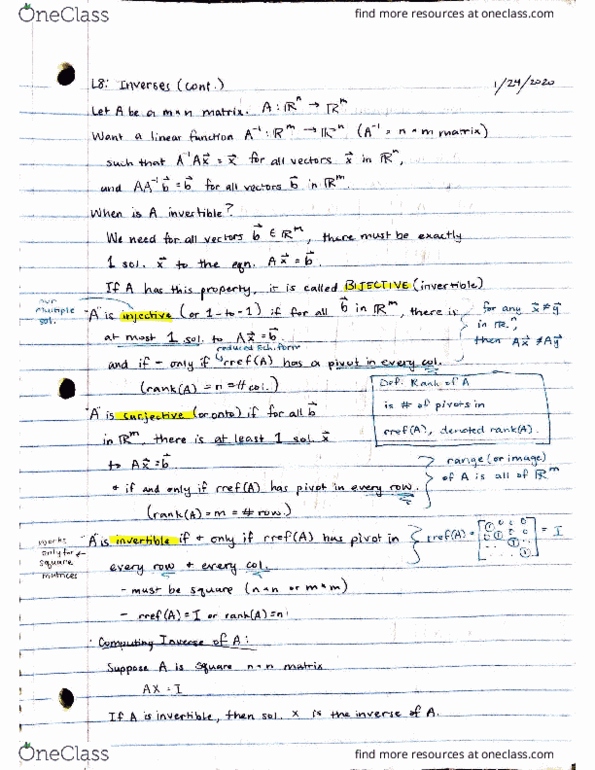 OneClass
find more resources at oneclass.com
L8: Inverses (cont.)
1/24/2020
Let A be a m×n matrix. A: ℝⁿ → ℝᵐ
Want a linear function A⁻¹: ℝᵐ → ℝⁿ (A⁻¹ = n×m matrix)
such that A⁻¹Ax⃗ = x⃗ for all vectors x⃗ in ℝⁿ,
and AA⁻¹b⃗ = b⃗ for all vectors b⃗ in ℝᵐ.
When is A invertible?
We need for all vectors b⃗ ∈ ℝᵐ, there must be exactly
1 sol. x⃗ to the eqn. Ax⃗ = b⃗.
If A has this property, it is called BIJECTIVE (invertible)
multiple
sol.
"A" is injective (or 1-to-1) if for all b⃗ in ℝᵐ, there is
at most 1 sol. to Ax⃗ = b⃗.
for any x⃗ ≠ y⃗
in ℝⁿ,
then Ax⃗ ≠ Ay⃗
reduced ech. form
and if - only if rref(A) has a pivot in every col.
(rank(A) = n = # col.)
Def: Rank of A
is # of pivots in
rref(A), denoted rank(A).
"A" is surjective (or onto) if for all b⃗
in ℝᵐ, there is at least 1 sol. x⃗
to Ax⃗ = b⃗
* if and only if rref(A) has pivot in every row.
(rank(A) = m = # row.)
range (or image)
of A is all of ℝᵐ
works
only for
square
matrices
"A" is invertible if + only if rref(A) has pivot in
every row + every col.
rref(A) = = I
- must be square (n×n or m×m)
- rref(A) = I or rank(A) = n
· Computing Inverse of A:
Suppose A is square n×n matrix
AX = I
If A is invertible, then sol. X is the inverse of A.
OneClass
find more resources at oneclass.com